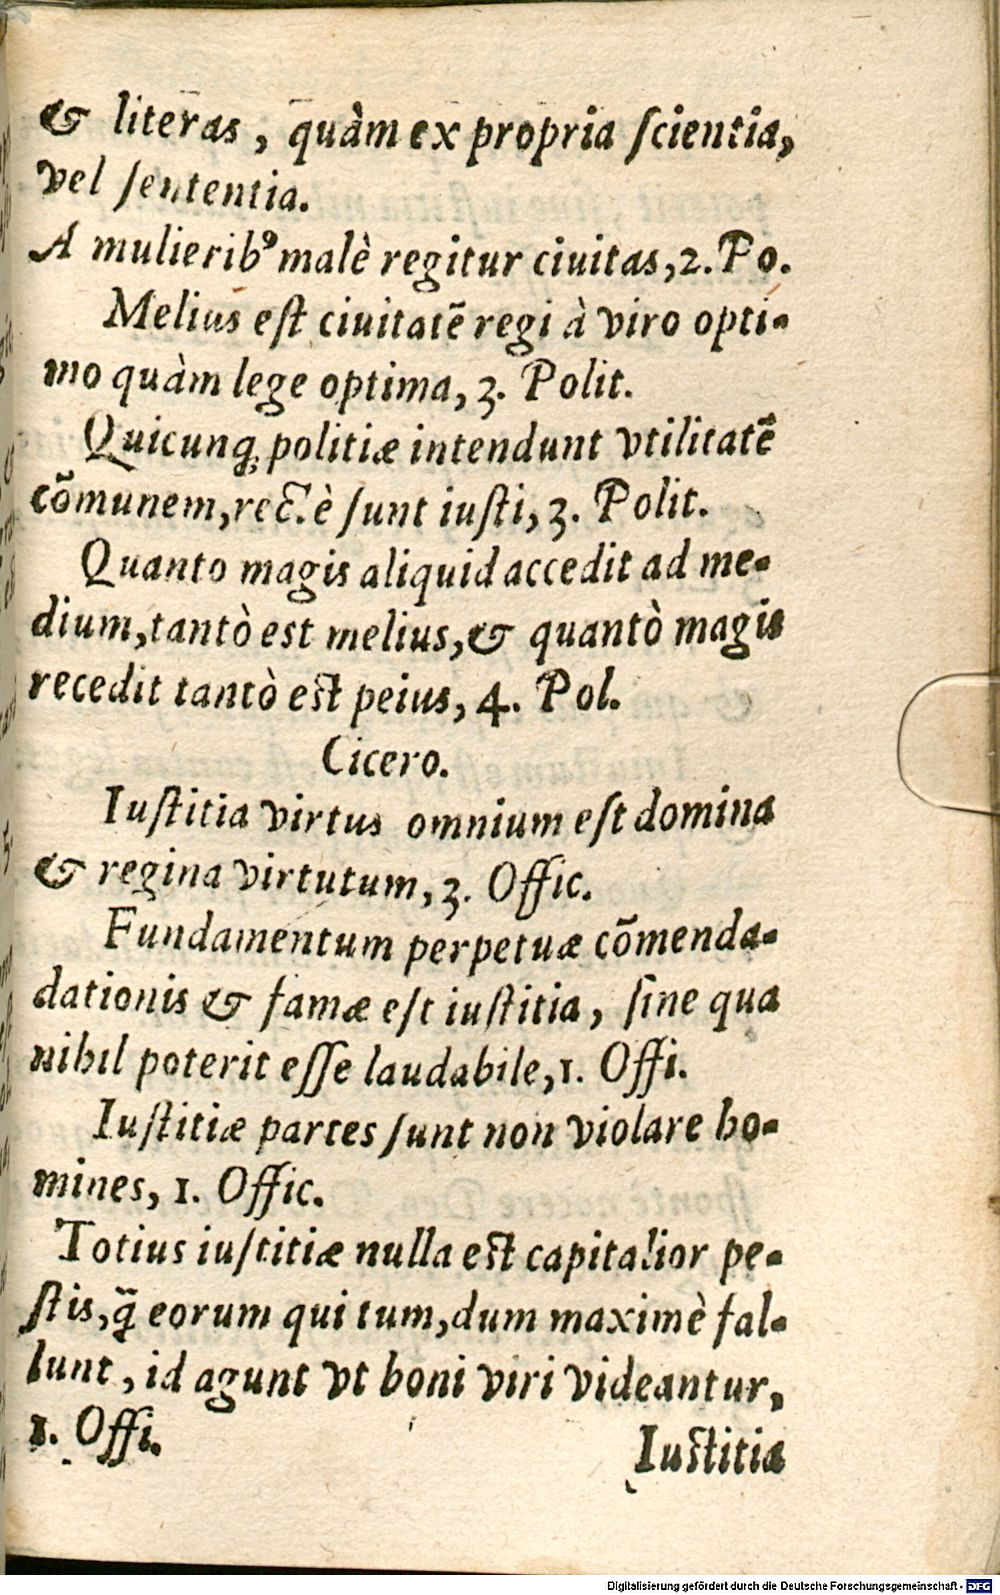 & literas, quàm ex propria ſcientia,
vel ſententia.
A mulierib⁹ malè regitur ciuitas, 2. Po.
Melius eſt ciuitatē regi à viro opti-
mo quàm lege optima, 3. Polit.
Quicunq; politiæ intendunt vtilitatē
cōmunem, rectè ſunt iuſti, 3. Polit.
Quanto magis aliquid accedit ad me-
dium, tantò est melius, & quantò magis
recedit tantò eſt peius, 4. Pol.
Cicero.
Iuſtitia virtus omnium eſt domina
& regina virtutum, 3. Offic.
Fundamentum perpetuæ cōmenda-
dationis & famæ eſt iuſtitia, ſine qua
nihil poterit eſſe laudabile, 1. Offi.
Iuſtitiæ partes ſunt non violare ho-
mines, 1. Offic.
Totius iuſtitiæ nulla eſt capitalior pe-
ſtis, q̃ eorum qui tum, dum maximè fal-
lunt, id agunt vt boni viri videantur,
1. Offi.
Iuſtitia
Digitalisierung gefördert durch die Deutsche Forschungsgemeinschaft - DFG